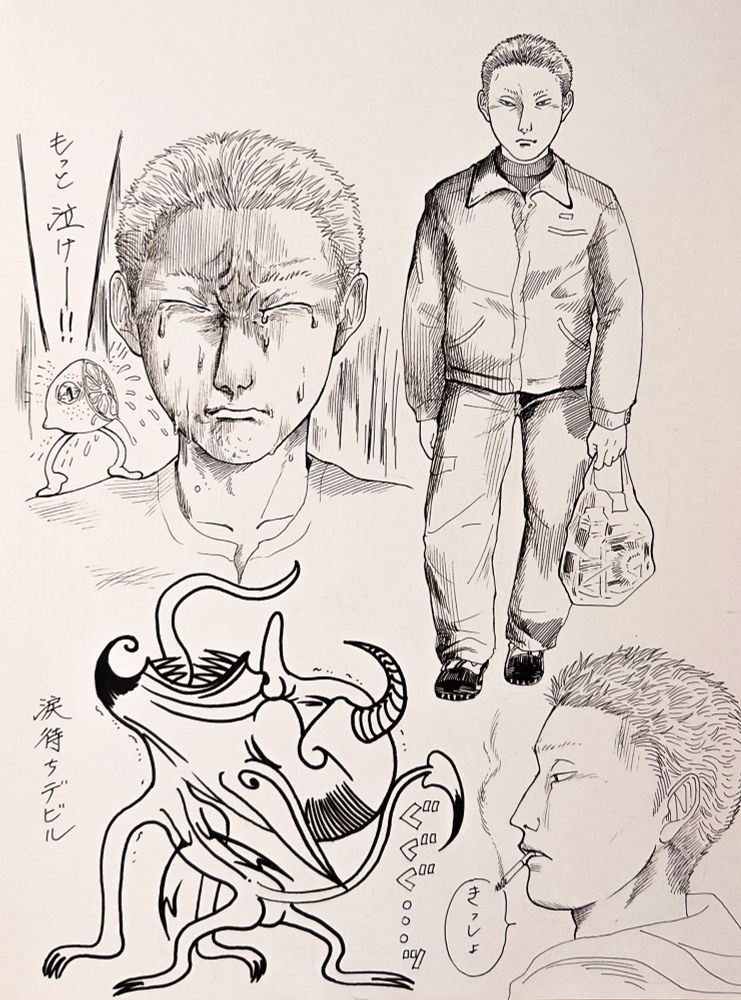 もっと泣けー!!
涙待ちデビル
ぐぐぐ...ッ
きっしょ